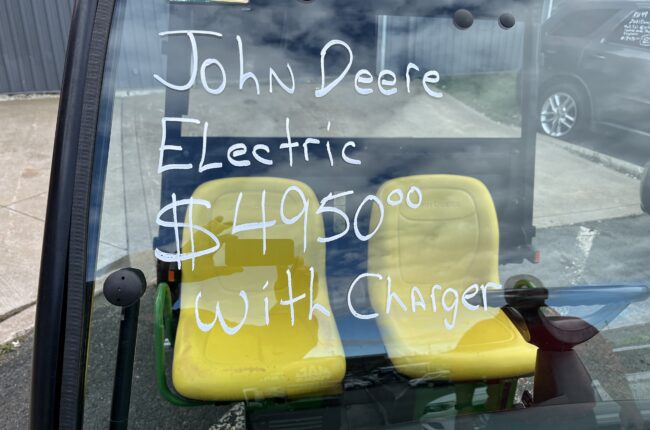 John Deere
Electric
$4950.00
with Charger